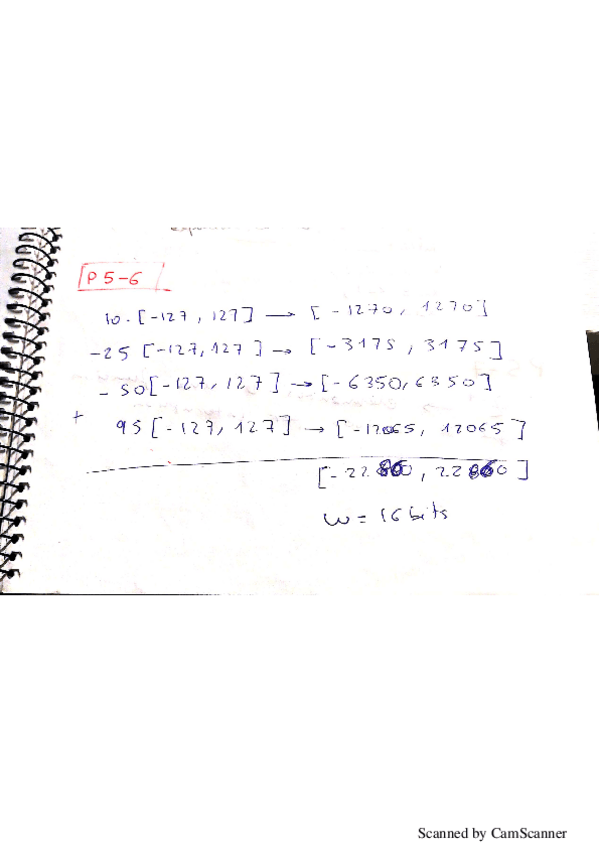 P 5-6
10·[-127, 127] → [-1270, 1270]
-25 [-127, 127] → [-3175, 3175]
- 50[-127, 127] → [-6350, 6350]
+ 95 [-127, 127] → [-12065, 12065]
[-22.860, 22.860]
w = 16 bits
Scanned by CamScanner